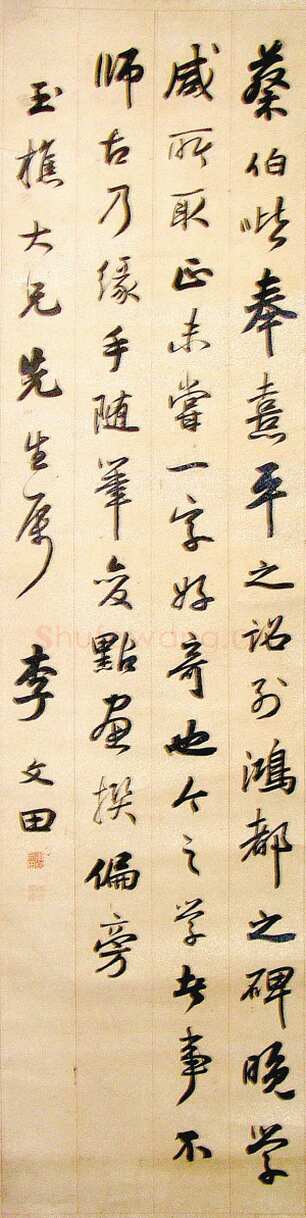 蔡伯喈奉熹平之诏列鴻都之碑晚学
咸所取正未嘗一字好奇也今之学者事不
师古乃缘手随笔変點画撰偏旁
玉樵大兄先生属 李文田